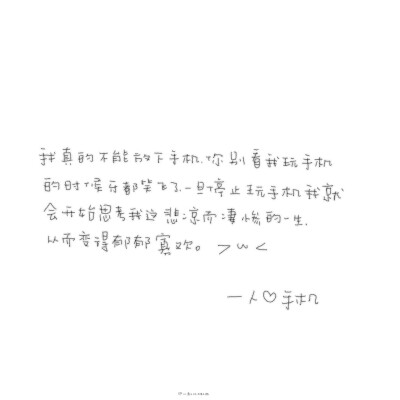 我真的不能放下手机.你别看我玩手机
的时候牙都笑飞了.一旦停止玩手机我就
会开始思考我这悲凉而凄惨的一生.
从而变得郁郁寡欢。>w<
一人♡手机